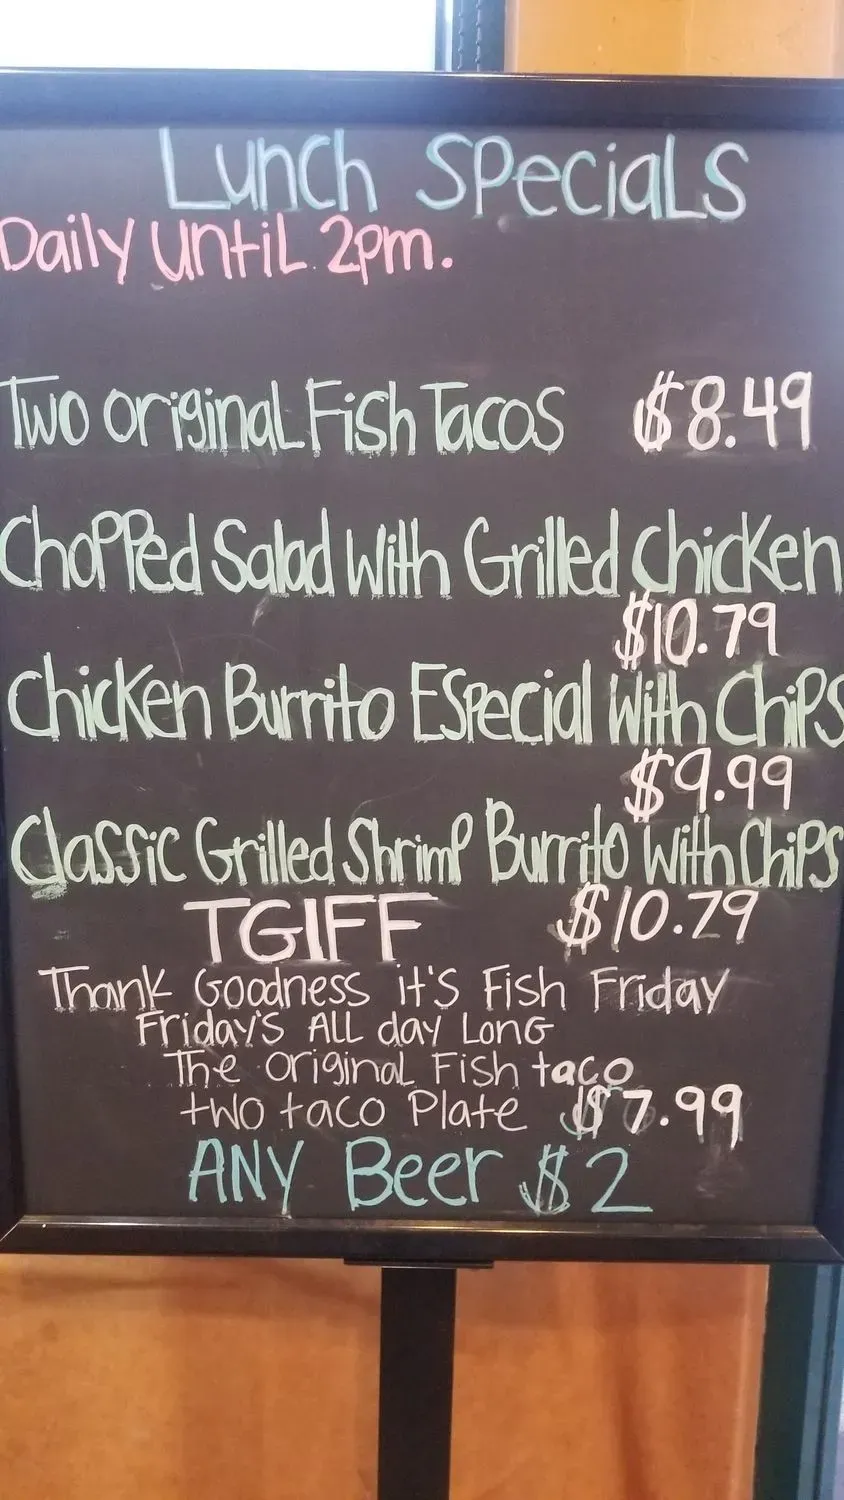 Lunch Specials
Daily until 2pm.
Two Original Fish Tacos $8.49
Chopped Salad With Grilled Chicken
$10.79
Chicken Burrito Especial With Chips
$9.99
Classic Grilled Shrimp Burrito With Chips
TGIFF $10.79
Thank Goodness it's Fish Friday
Friday's All day Long
The Original Fish taco
two taco Plate $7.99
ANY Beer $2